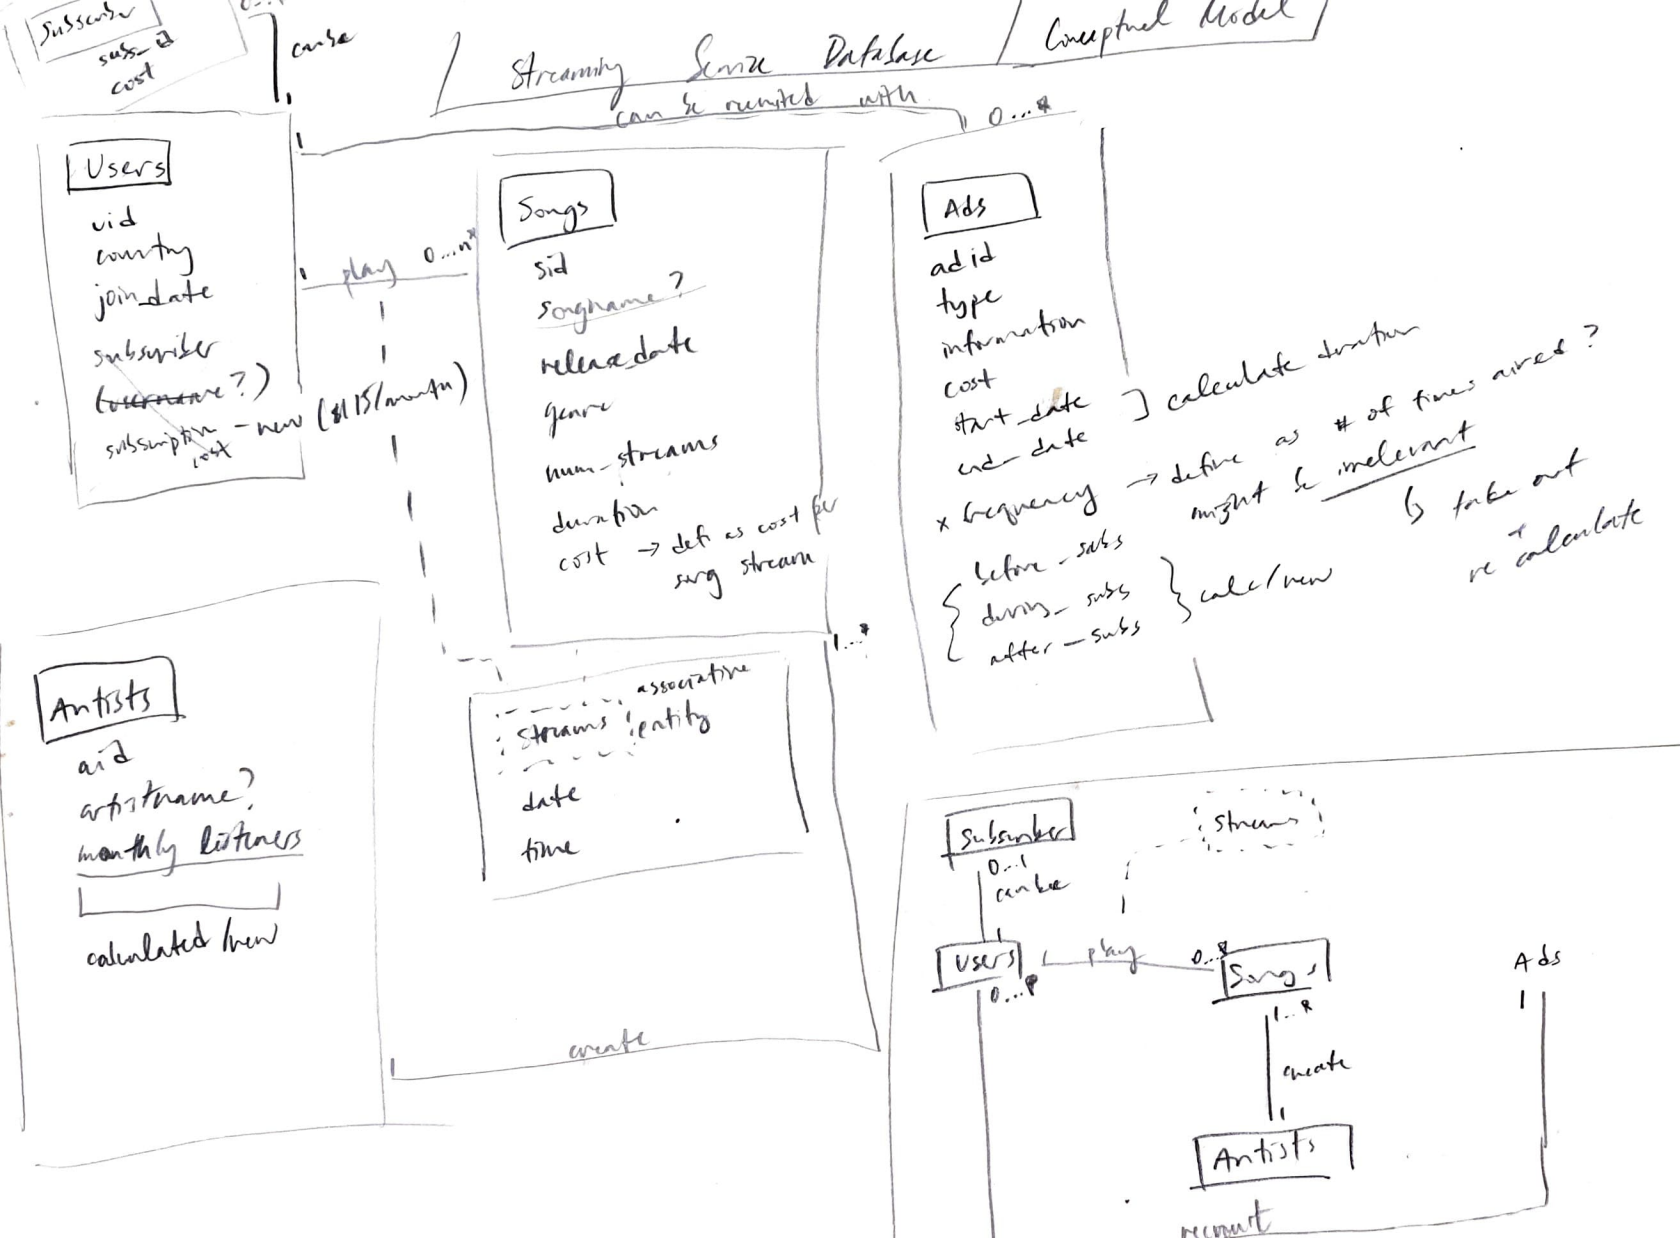 Subscriber
subs_id
cost
0...1
can be
1
Streaming Service Database
Conceptual Model
can be recruited with
1
0...*
Users
uid
country
join_date
subscriber
(username?)
subscription cost - new ($15/month)
1
play
0...n*
Songs
sid
songname?
release_date
genre
num_streams
duration
cost → def. as cost per
song stream
1...*
Ads
adid
type
information
cost
start_date
end_date
] calculate duration
x frequency → define as # of times aired?
might be irrelevant
↳ take out
+
recalculate
before_subs
during_subs
after_subs
} calc/new
Artists
aid
artistname?
monthly listeners
calculated/new
1
create
streams
associative
entity
date
time
Subscriber
0...1
can be
1
Users
0...*
1
play
0...*
streams
Songs
1...*
create
1
Artists
Ads
1
recruit